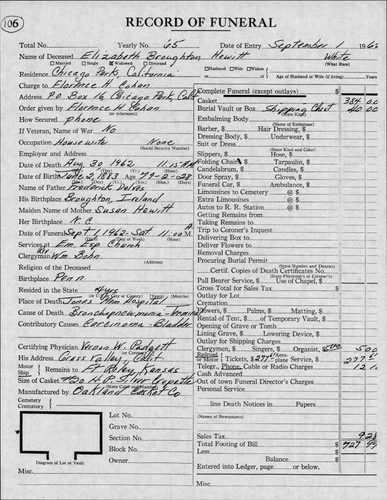 106
RECORD OF FUNERAL
Total No. Yearly No. 65 Date of Entry September 1 196
Name of Deceased Elizabeth Broughton Hewitt White
Married Single Widowed Divorced (What Race)
Residence Chicago Park, California
Husband Wife Widow
Age of Husband or Wife (if living) Years
Charge to Florence H. Cohan
Address P.O. Box 16 Chicago Park, Calif
Order given by Florence H Cohan
(or informant)
How Secured phone
If Veteran, Name of War No
Occupation Housewife None
(Social Security Number)
Employer and Address
Date of Death Aug 30 1962 11:15
Date of Birth June 2, 1883 Age 79-2-28
Name of Father Frederick
His Birthplace Broughton, Ireland
Maiden Name of Mother Susan Hewitt
Her Birthplace N.C.
Date of Funeral Sept 1, 1962-Sat. 11:00 A.M.
Services at Em. Esp Church
Clergyman Wm Bohn
Religion of the Deceased
Birthplace Penn
Resided in the State 4 yrs
Place of Death Jones Mem Hospital
Cause of Death Bronchopneumonia
Contributory Causes Carcinoma - Bladder
Certifying Physician Vernon W. Padgett
His Address Grass Valley, Calif
Motor Remains to Ft Riley, Kansas
Size of Casket
Manufactured by Oakland Casket Co
Cemetery
Crematory
Lot No.
Grave No.
Section No.
Block No.
Owner
Diagram of Lot or Vault
Complete Funeral (except outlays) $
Casket 384 00
Burial Vault or Box Shipping Chest 40 00
(State Kind)
Embalming Body
(Name of Embalmer)
Barber, $ Hair Dressing, $
Dressing Body, $ Underwear, $
Suit or Dress
(State Kind and Color)
Slippers, $ Hose, $
Folding Chairs $ Tarpaulin, $
Candelabrum, $ Candles, $
Door Spray, $ Gloves, $
Funeral Car, $ Ambulance, $
Limousines to Cemetery @ $
Extra Limousines @ $
Autos to R. R. Station @ $
Getting Remains from
Taking Remains to
Trip to Coroner's Inquest
Delivering Box to
Deliver Flowers to
Removal Charges
Procuring Burial Permit
(State Number and District)
Certif. Copies of Death Certificates No.
(State Physician's or Coroner's)
Pall Bearer Service, $ Use of Chapel, $
Gross Total for Sales Tax $
Outlay for Lot
Cremation
Flowers, $ Palms, $ Matting, $
Rental of Tent, $ of Temporary Vault, $
Opening of Grave or Tomb
Lining Grave, $ Lowering Device, $
Outlay for Shipping Charges
Clergymen, $ Singers, $ Organist, $ 5.00 5 00
Railroad or Motor Tickets, $ 277.51 Aeroplane Service, $ 277 51
Telegr., Phone, Cable or Radio Charges
Cash Advanced
Out of town Funeral Director's Charges
Personal Service
line Death Notices in Papers
(Names of Newspapers)
Sales Tax
Total Footing of Bill $ 727
Less
Balance $
Entered into Ledger, page or below.